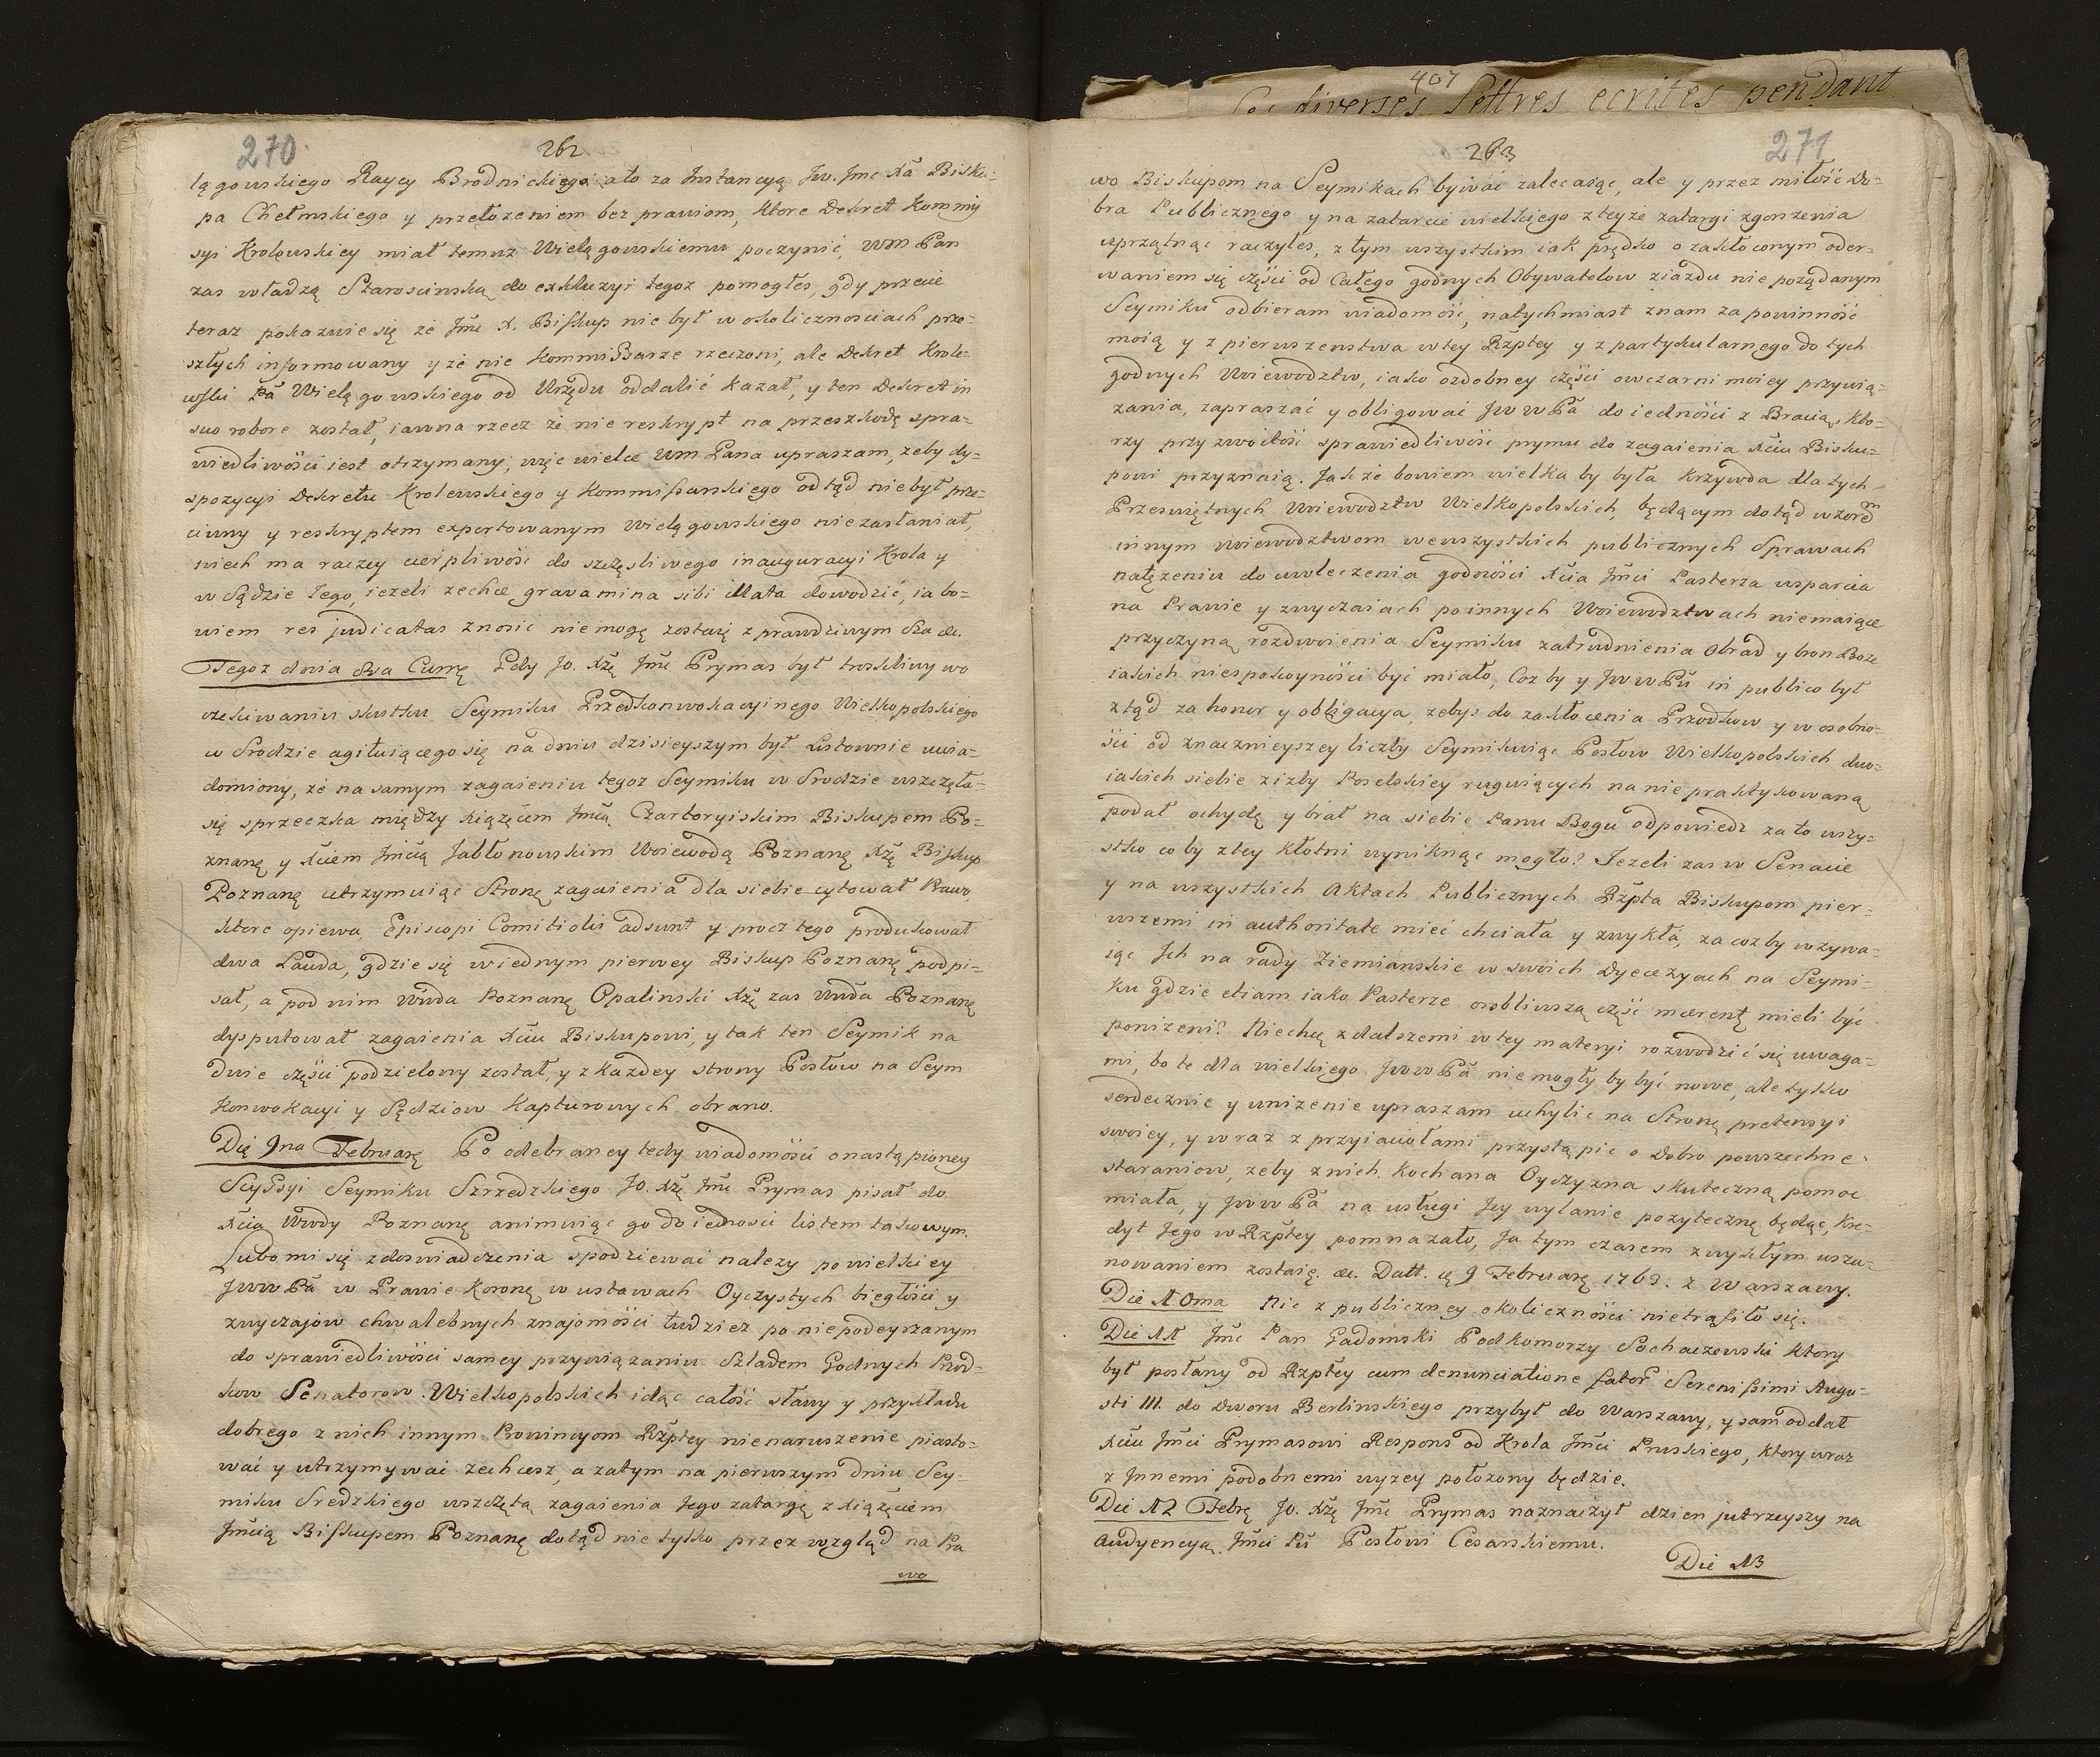 407
diverses Lettres ecrites pendant
270
262
lągowskiego Raycy Brodnickiego ato za Instancyą Jw. Jmc Xa Bisku-
pa Chełmskiego y przełożeniem bez prawiom, ktore Dekret Kommis
syi Krolewskiey miał temuz Wielągowskiemu poczynić, WM Pan
zas władzą Starościnską do exkluzyi tegoz pomogłes, gdy przecie
teraz pokazuie się że Jmc X. Biskup nie był w okolicznosciach prze-
szłych informowany y że nie Kommissarze rzeczoni, ale Dekret Krole-
wski Pa Wielągowskiego od Urzędu oddalić kazał, y ten Dekret in
suo robore został, iawna rzecz że nie reskrypt na przeszkodę spra-
wiedliwości iest otrzymany, więc wielce WM Pana upraszam, zeby dy-
spozycyi Dekretu Krolewskiego y Kommissarskiego odtąd nie był prze-
ciwny y reskryptem exportowanym Wielągowskiego nie zasłaniał,
niech ma raczey cierpliwość do szczęsliwego inauguracyi Krola y
w Sądzie Jego, iezeli zechce gravamina sibi illata dowodzić, ia bo-
wiem res judicatas znosić nie mogę zostaię z prawdziwym Sza &c.
Tegoz dnia 8va Currę Gdy Jo. Xżę Jmć Prymas był troskliwy wo
czekiwaniu skutku Seymiku Przedkonwokacyinego Wielkopolskiego
w Srodzie agituiącego się na dniu dzisieyszym był Listownie uwia-
domiony, że na samym zagaieniu tegoz Seymiku w Srodzie wszczęła-
się sprzeczka między Xiążęciem Jmcią Czartoryiskim Biskupem Po-
znanę y Xciem Jmcią Jabłonowskim Woiewodą Poznanę Xżę Biskup
Poznanę utrzymuiąc Stronę zagaienia dla siebie cytował Prawo,
ktore opiewa, Episcopi Comitiolis adsunt y procz tego produkował
dwa Lauda, gdzie się w iednym pierwey Biskup Poznanę podpi-
sał, a pod nim Wda Poznanę Opalinski Xżę zas Wda Poznanę
dysputował zagaienia Xciu Biskupowi, y tak ten Seymik na
dwie części podzielony został, y z kazdey strony Posłow na Seym
Konwokacyi y Sędziow Kapturowych obrano.
Die 9na Februarę Po odebraney tedy wiadomości o nastąpioney
Scyssyi Seymiku Szrzedzkiego Jo. Xżę Jmć Prymas pisał do
Xcia Wwdy Poznanę animuiąc go do iedności listem takowym.
Lubo mi się z doswiadczenia spodziewać nalezy po wielkiey
JWWPa w Prawie Koronę w ustawach Oyczystych biegłości y
zwyczajow chwalebnych znajomości tudziez po niepodeyrzanym
do sprawiedliwości samey przywiązaniu Szladem Godnych Przod-
kow Senatorow Wielkopolskich idąc całość sławy y przykładu
dobrego z nich innym Prowincyom Rzptey nienaruszenie piasto-
wać y utrzymywać zechcesz, a zatym na pierwszym dniu Sey-
miku Sredzkiego wszczętą zagaienia Jego zatargę z Xiążęciem
Jmcią Biskupem Poznanę dotąd nie tylko przez wzgląd na Pra
wo
271
263
wo Biskupom na Seymikach bywać zalecaiące, ale y przez miłość do-
bra Publicznego y na zatarcie wielkiego z teyze zatargi zgorszenia
uprzątnąc raczyłes, z tym wszystkim iak prędko o zakłoconym oder-
waniem się części od Całego godnych Obywatelow ziazdu nie pożądanym
Seymiku odbieram wiadomość, natychmiast znam za powinność
moią y z pierwszenstwa w tey Rzptey y z partykularnego do tych
godnych Woiewodztw, iako ozdobney części owczarni moiey przywią-
zania, zapraszać y obligować JWWPa do iedności z Bracią, kto-
rzy przyzwoitość sprawiedliwość prymu do zagaienia Xciu Bisku-
powi przyznaią. Jak że bowiem wielka by była krzywda dla tych
Przeswiętnych Woiewodztw Wielkopolskich, będącym dotąd wzorem
innym Woiewodztwom we wszystkich publicznych Sprawach
natężeniu do uwleczenia godności Xcia Jmci Pasterza wsparcia
na Prawie y zwyczaiach po innych Woiewodztwach niemaiące
przyczyną rozdwoienia Seymiku zatrudnienia Obrad y bron Boze
iakich niespokoyności być miało, Coz by y JWWPu in publico był
ztąd za honor y obligacya, zebys do zakłocenia Przodkow y w osobno-
ści od znacznieyszey liczby Seymikuiąc Posłow Wielkopolskich dwo-
iakich siebie z izby Poselskiey ruguiących na nie praktykowaną
podał ochydę y brał na siebie Panu Bogu odpowiedz za to wszy-
stko co by z tey kłotni wyniknąć mogło? Jezeli zas w Senacie
y na wszystkich Aktach Publicznych Rzpta Biskupom pier-
wszemi in authoritate mieć chciała y zwykła, za coz by wzywa-
iąc Jch na rady Ziemianskie w swoich Dyecezyach na Seymi-
ku gdzie etiam iako Pasterze osobliwszą część mcerentę mieli być
poniżeni? Niechcę z dalszemi w tey materyi rozwodzić się uwaga-
mi, bo te dla wielkiego JWWPa nie mogły by być nowe, ale tylko
serdecznie y uniżenie upraszam uchylic na Stronę pretensyi
swoiey, y wraz z przyiaciołami przystąpic o Dobro powszechne
staraniow, zeby z nich kochana Oyczyzna skuteczną pomoc
miała, y JWWPa na usługi Jey wylanie pozyteczne będąc, Kre-
dyt Jego w Rzptey pomnazało, Ja tym czasem z wykłym usza-
nowaniem zostaię. &c. Datt. ę 9 Februarę 1763. z Warszawy.
Die 10ma Nic z publiczney okoliczności nietrafiło się.
Die 11 Jmć Pan Gadomski Podkomorzy Sochaczewski ktory
był posłany od Rzptey cum denunciatione fator Serenissimi Augu-
sti III. do Dworu Berlinskiego przybył do Warszawy, y sam oddał
Xciu Jmci Prymasowi Respons od Krola Jmci Pruskiego, ktory wraz
z Innemi podobnemi wyzey położony będzie.
Die 12 Febrę Jo. Xżę Jmć Prymas naznaczył dzien jutrzeyszy na
Audyencyą Jmci Pu Posłowi Cesarskiemu.
Die 13